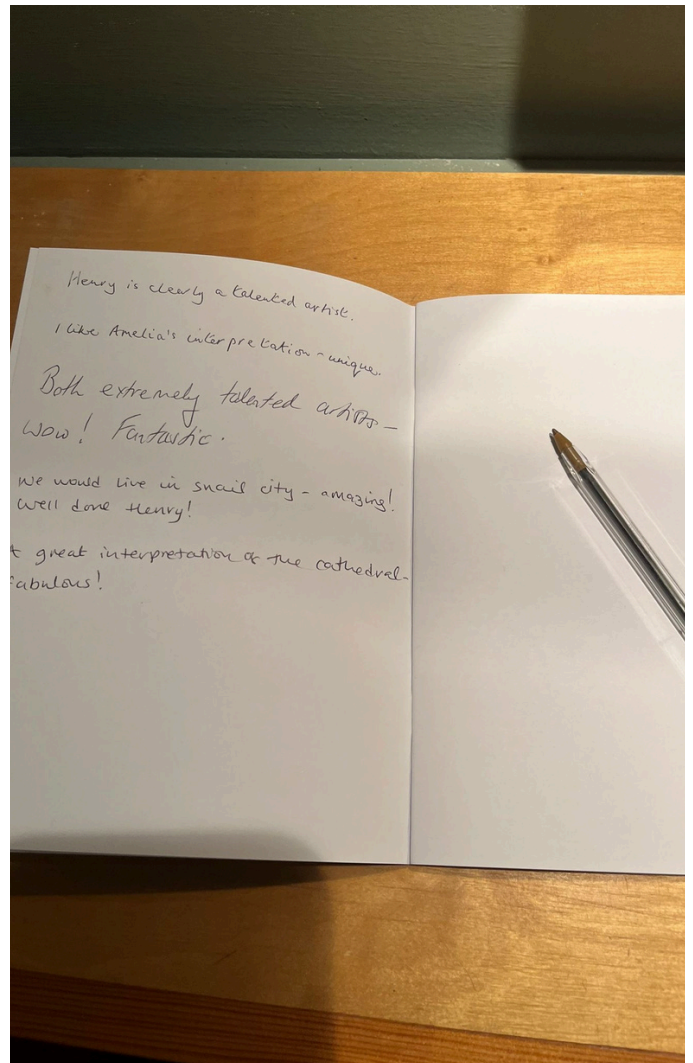 Henry is clearly a talented artist.
I like Amelia's interpretation - unique.
Both extremely talented artists -
wow! Fantastic.
We would live in snail city - amazing!
Well done Henry!
great interpretation of the cathedral -
fabulous!